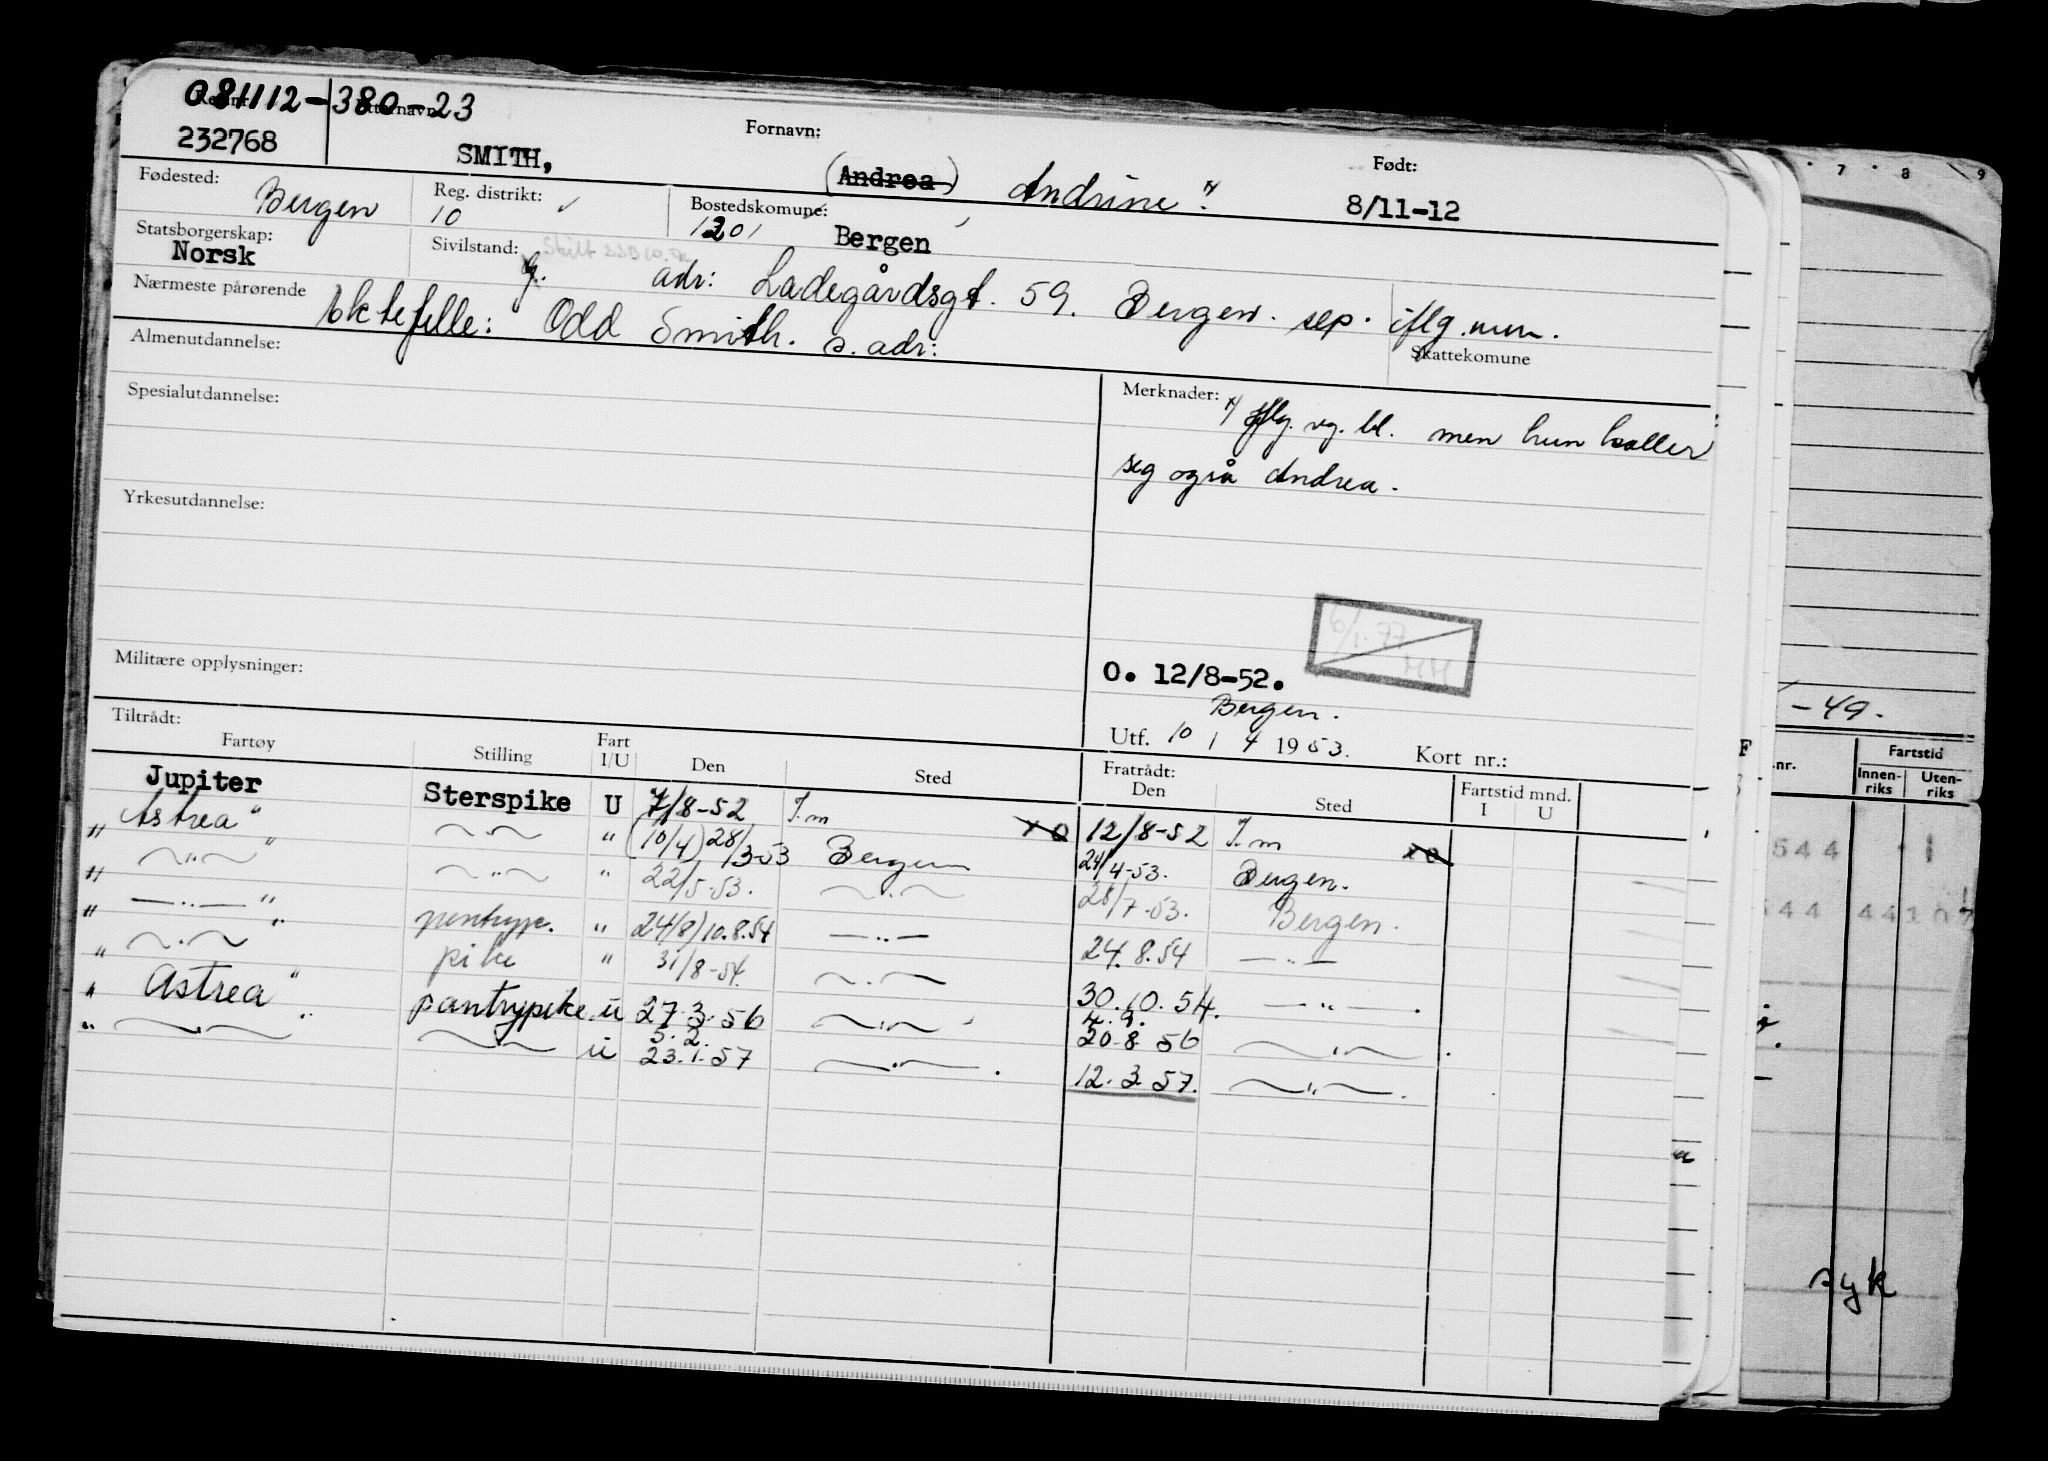 081112-380-23
Reg.nr. Etternavn: Fornavn: Født:
232768 SMITH, (Andrea) Andrine x) 8/11-12
Fødested: Bergen Reg. distrikt: 10 Bostedskomune: 1201 Bergen
Statsborgerskap: Norsk Sivilstand: g. adr: Ladegårdsgt. 59. Bergen. sep. iflg. mm.
Nærmeste pårørende Ektefelle: Odd Smith. s. adr: Skattekomune
Almenutdannelse:
Spesialutdannelse:
Merknader: x) Iflg. vg. bl. men hun kaller
seg også Andrea.
Yrkesutdannelse:
6/1-77
HH
Militære opplysninger:
O. 12/8-52.
Bergen.
Utf. 10 / 4 1953. Kort nr.:
Tiltrådt: Fratrådt:
Fartøy Stilling Fart I/U Den Sted Den Sted Fartstid mnd. I U
Jupiter Sterspike U 7/8-52 T.m 12/8-52 T.m
" Astrea " " (10/4) 28/3-53 Bergen 24/4-53. Bergen.
" " " " 22/5-53. " 28/7-53. Bergen.
" " " pentryp. " 24/8) 10.8.54 " 24.8.54 "
" " " pike " 31/8-54. " 30.10.54. "
" Astrea " pantrypike u 27.3.56 " 4.9.
20.8.56 "
" " " " u 5.2.
23.1.57 " 12.3.57. "
7 8 9
-49.
.nr. Fartstid
Innen-riks Uten-riks
544 1
544 44107
syk